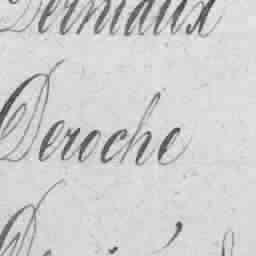 Derniaux
Deroche